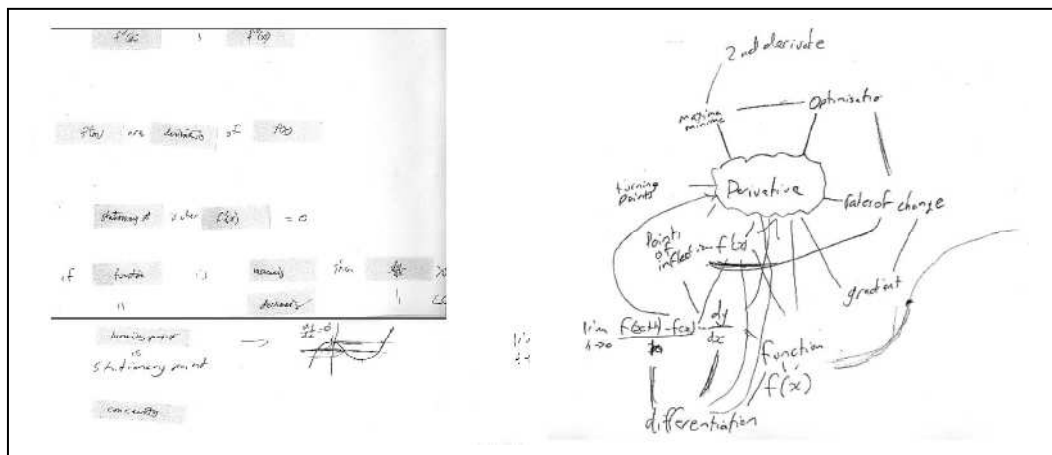 f'(x) , f''(x)
f'(x) are derivatives of f(x)
stationary pt when f'(x) = 0
if function is increasing then dy/dx >0
" decreasing " <0
turning point → dy/dx=0
is
Stationary point
concavity
2nd derivate
maxima
minima
Optimisatio
turning
points
Derivative
Rates of change
points
of
inflection
f'(x)
gradient
lim h→0 f(x+h)-f(x)/h
dy/dx
function
f(x)
differentiation
lim